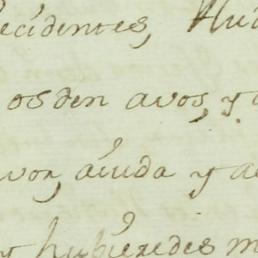 ecidentes,
os den avos, y
vor, aiuda y a
y hubieredes m